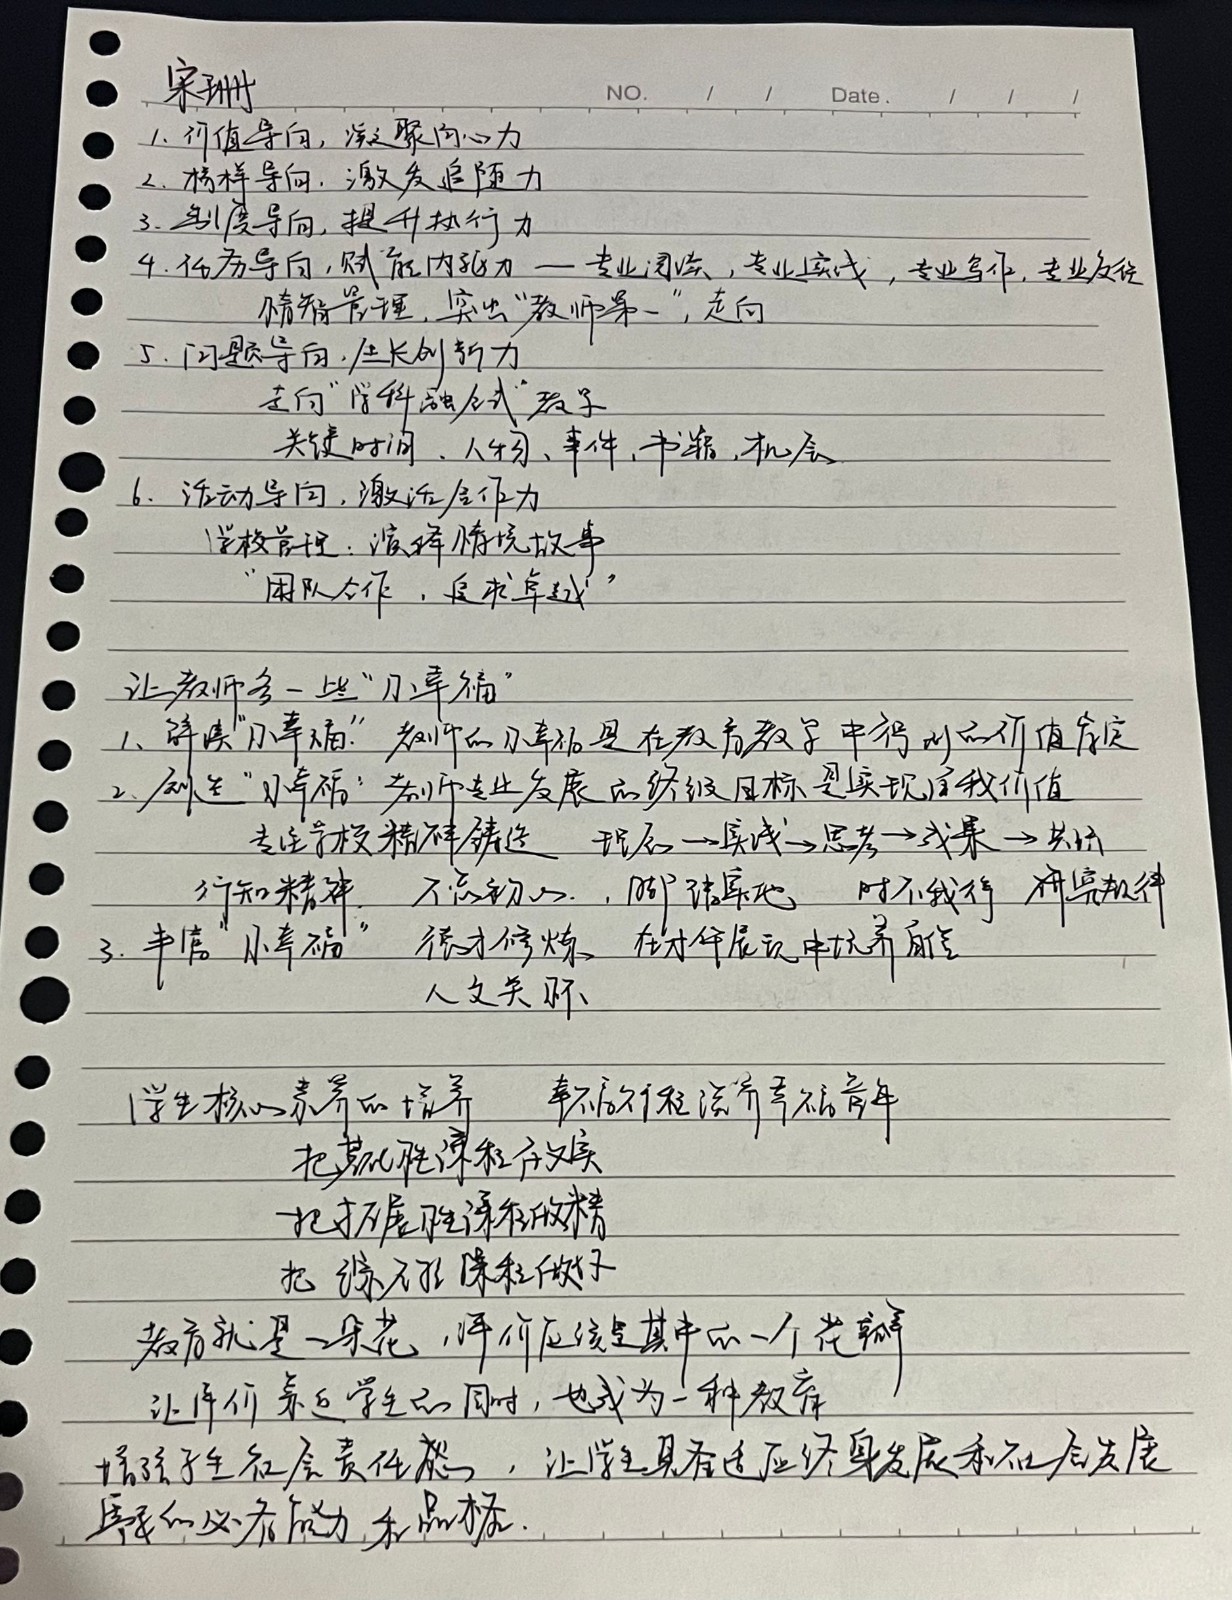 宋珊
NO. / / Date. / / /
1. 价值导向，凝聚向心力
2. 榜样导向，激发追随力
3. 制度导向，提升执行力
4. 任务导向，赋能内驱力 — 专业阅读，专业实践，专业写作，专业反馈
情智管理，突出“教师第一”，走向
5. 问题导向，生长创新力
走向“学科融合式”教学
关键时间、人物、事件、书籍、机会
6. 活动导向，激活合作力
学校管理：演绎情境故事
“团队合作，追求卓越”
让教师多一些“小幸福”
1、解读“小幸福”：教师的小幸福是在教育教学中得到的价值肯定
2、创造“小幸福”：教师专业发展的终极目标是实现自我价值
专注学校精神铸造 理念→实践→思考→成果→共济
行知精神 不忘初心，脚踏实地 时不我待 研究教科
3. 丰富“小幸福” 修炼 在才华展现中培养自信
人文关怀
学生核心素养的培养 幸福课程滋养幸福童年
把基础性课程夯实
把拓展性课程做精
把综合性课程做好
教育就是一朵花，评价应该是其中的一个花瓣
让评价靠近学生的同时，也成为一种教育
增强学生社会责任感，让学生具备适应终身发展和社会发展
需要的必备能力和品格.